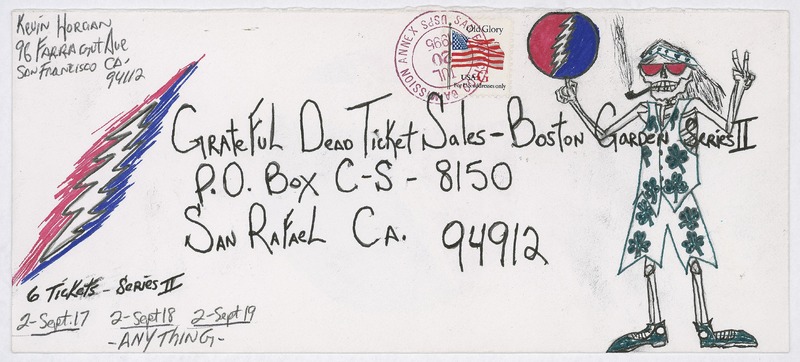 Kevin Horgan
96 Farragut Ave
San Francisco CA,
94112
MISSION ANNEX USPS SAN
JUL
20
1996
Old Glory
USA
For U.S. addresses only
Grateful Dead Ticket Sales - Boston Garden Series II
P.O. Box C-S - 8150
San Rafael CA. 94912
6 Tickets - Series II
2-Sept.17 2-Sept18 2-Sept19
- ANYTHING -